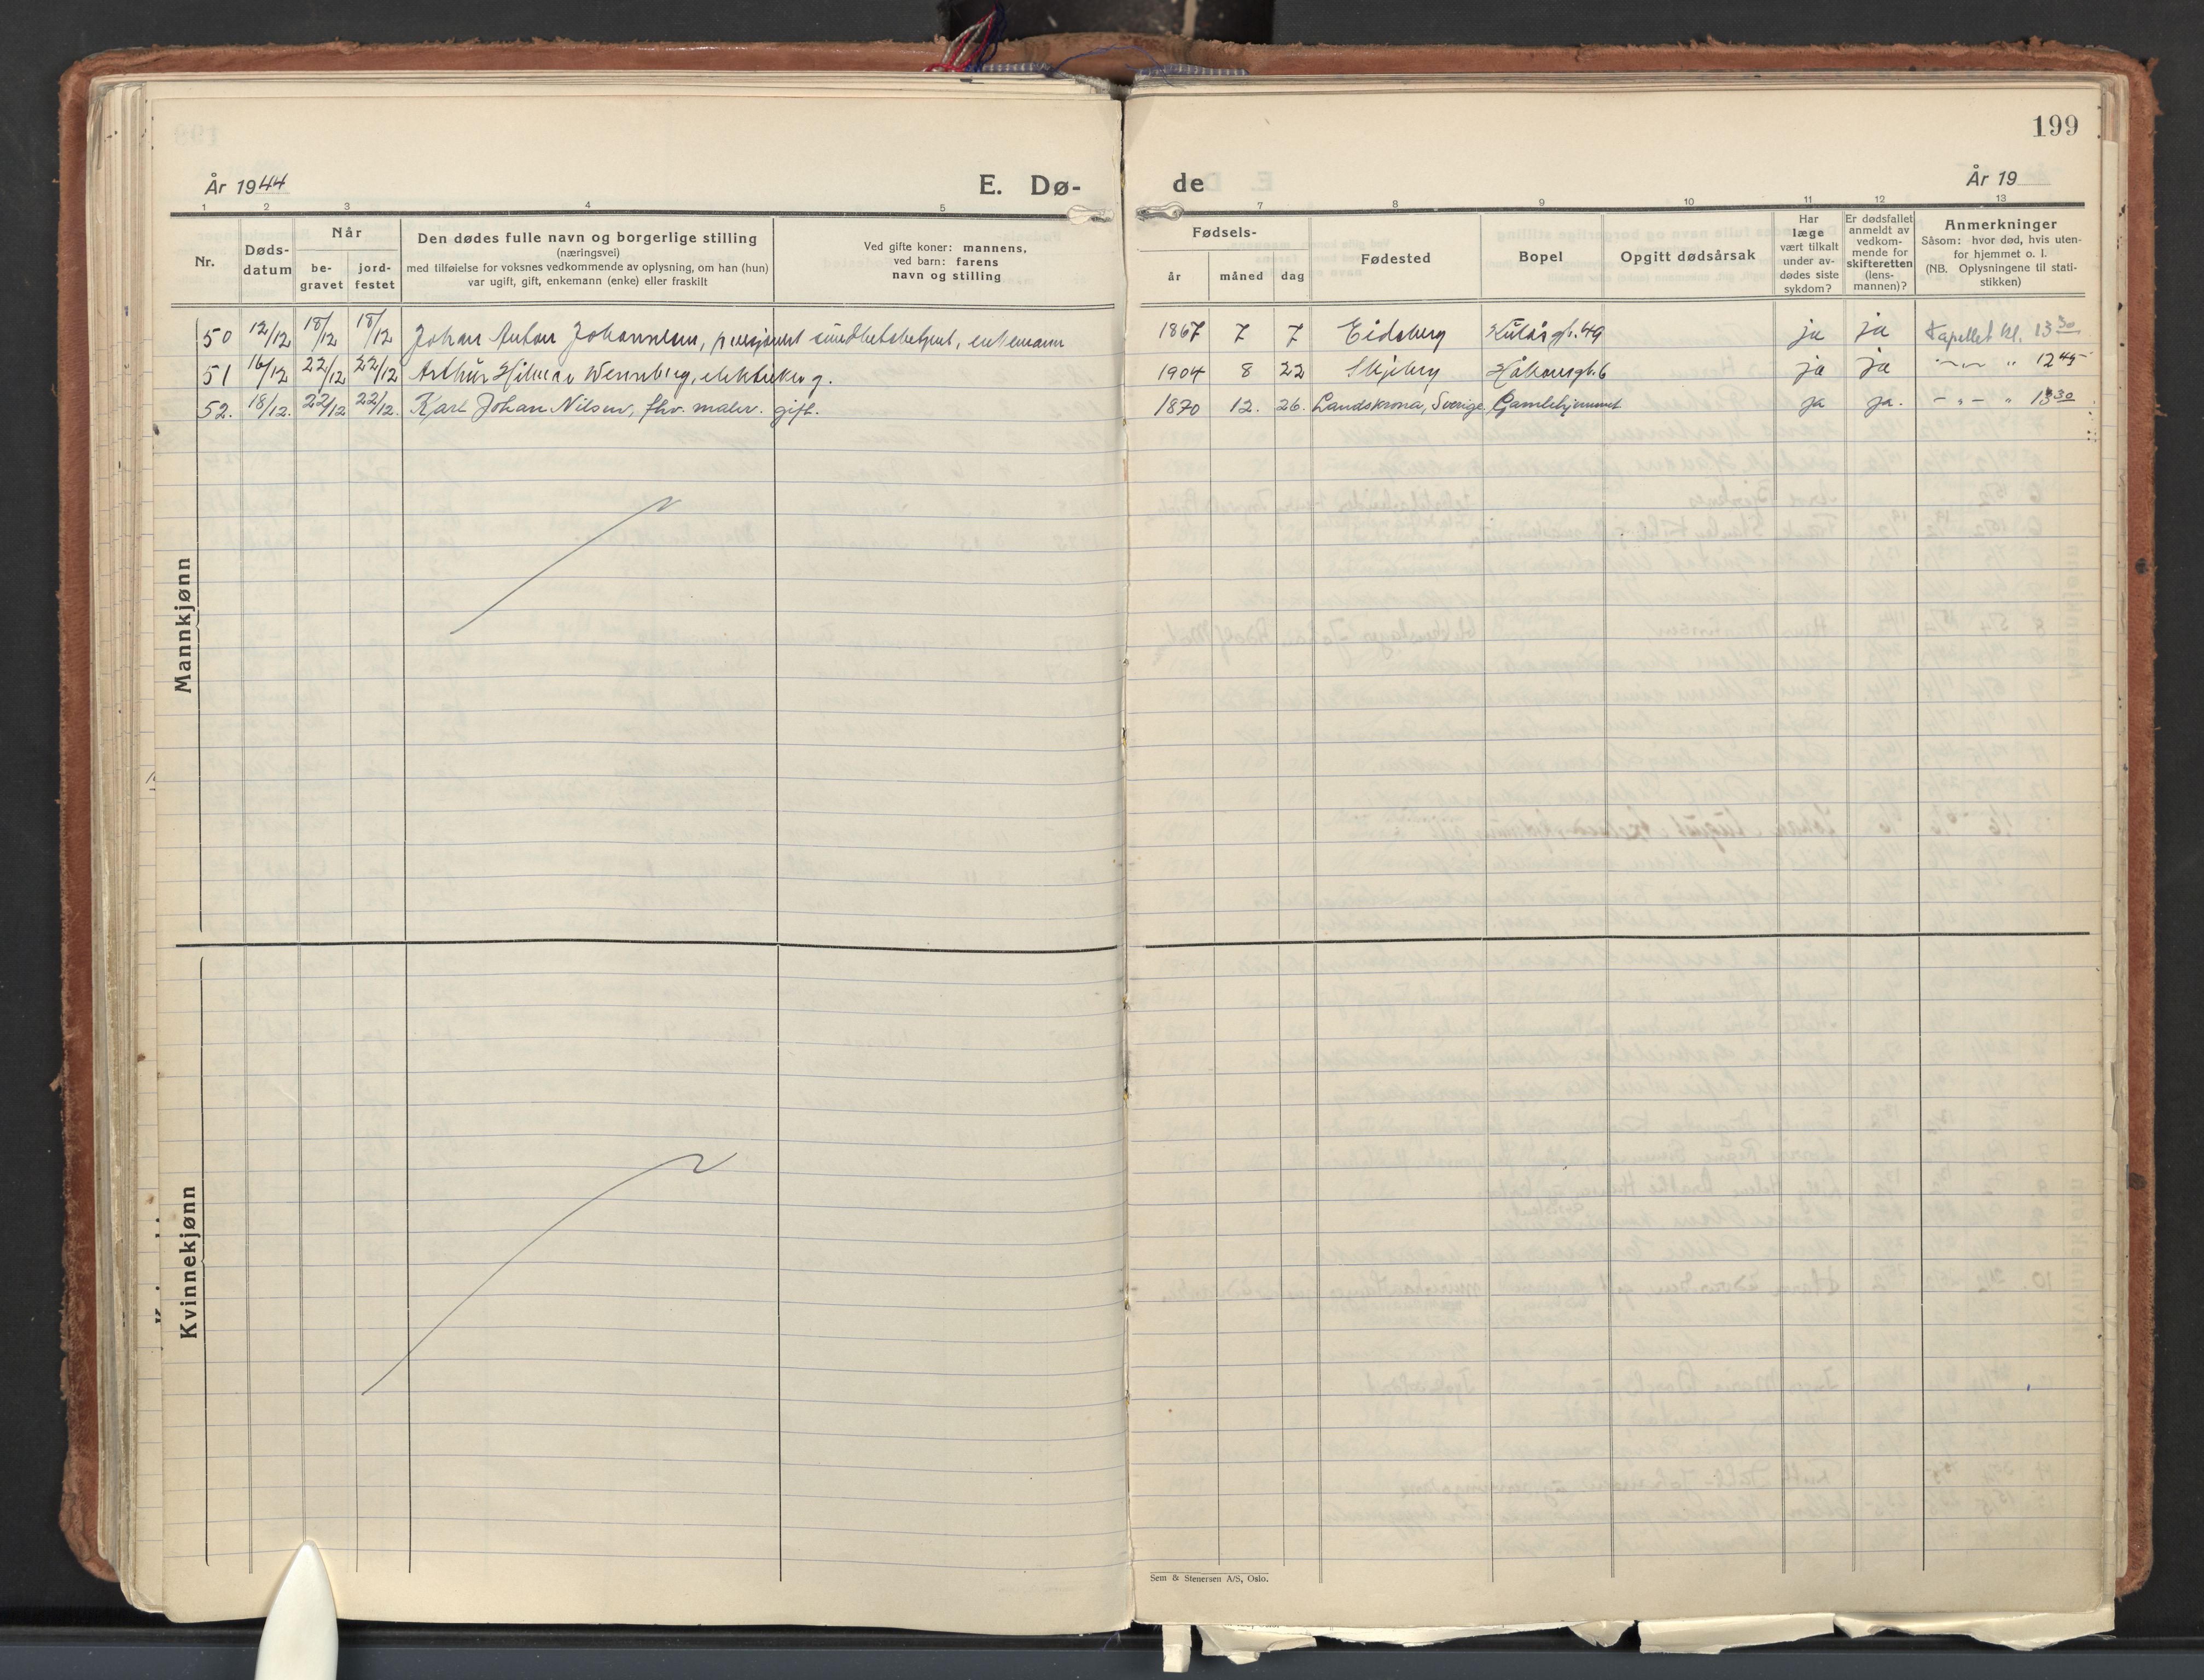 199
År 1944
E. Dø-
de
År 19
1 2 3 4 5 7 8 9 10 11 12 13
Nr.
Døds-
datum
Når
be-
gravet
jord-
festet
Den dødes fulle navn og borgerlige stilling
(næringsvei)
med tilføielse for voksnes vedkommende av oplysning, om han (hun)
var ugift, gift, enkemann (enke) eller fraskilt
Ved gifte koner: mannens,
ved barn: farens
navn og stilling
Fødsels-
år måned dag
Fødested
Bopel
Opgitt dødsårsak
Har
læge
vært tilkalt
under av-
dødes siste
sykdom?
Er dødsfallet
anmeldt av
vedkom-
mende for
skifteretten
(lens-
mannen)?
Anmerkninger
Såsom: hvor død, hvis uten-
for hjemmet o. l.
(NB. Oplysningene til stati-
stikken)
50 12/12 18/12 18/12 Johan Anton Johannesen, pensjonert sundhetsbetjent, enkemann 1867 7 7 Eidsberg Kulåsgt. 49 ja ja Kapellet kl. 13 30
51 16/12 22/12 22/12 Arthur Hilmar Wennberg, elektriker g. 1904 8 22 Skjeberg Håkonsgt. 6 ja ja " 12 45
52. 18/12. 22/12 22/12. Karl Johan Nilsen, fhv. maler. gift. 1870 12. 26. Landskrona, Sverige Gamlehjemmet ja ja. - " - " 13 30
Mannkjønn
Kvinnekjønn
Sem & Stenersen A/S, Oslo.